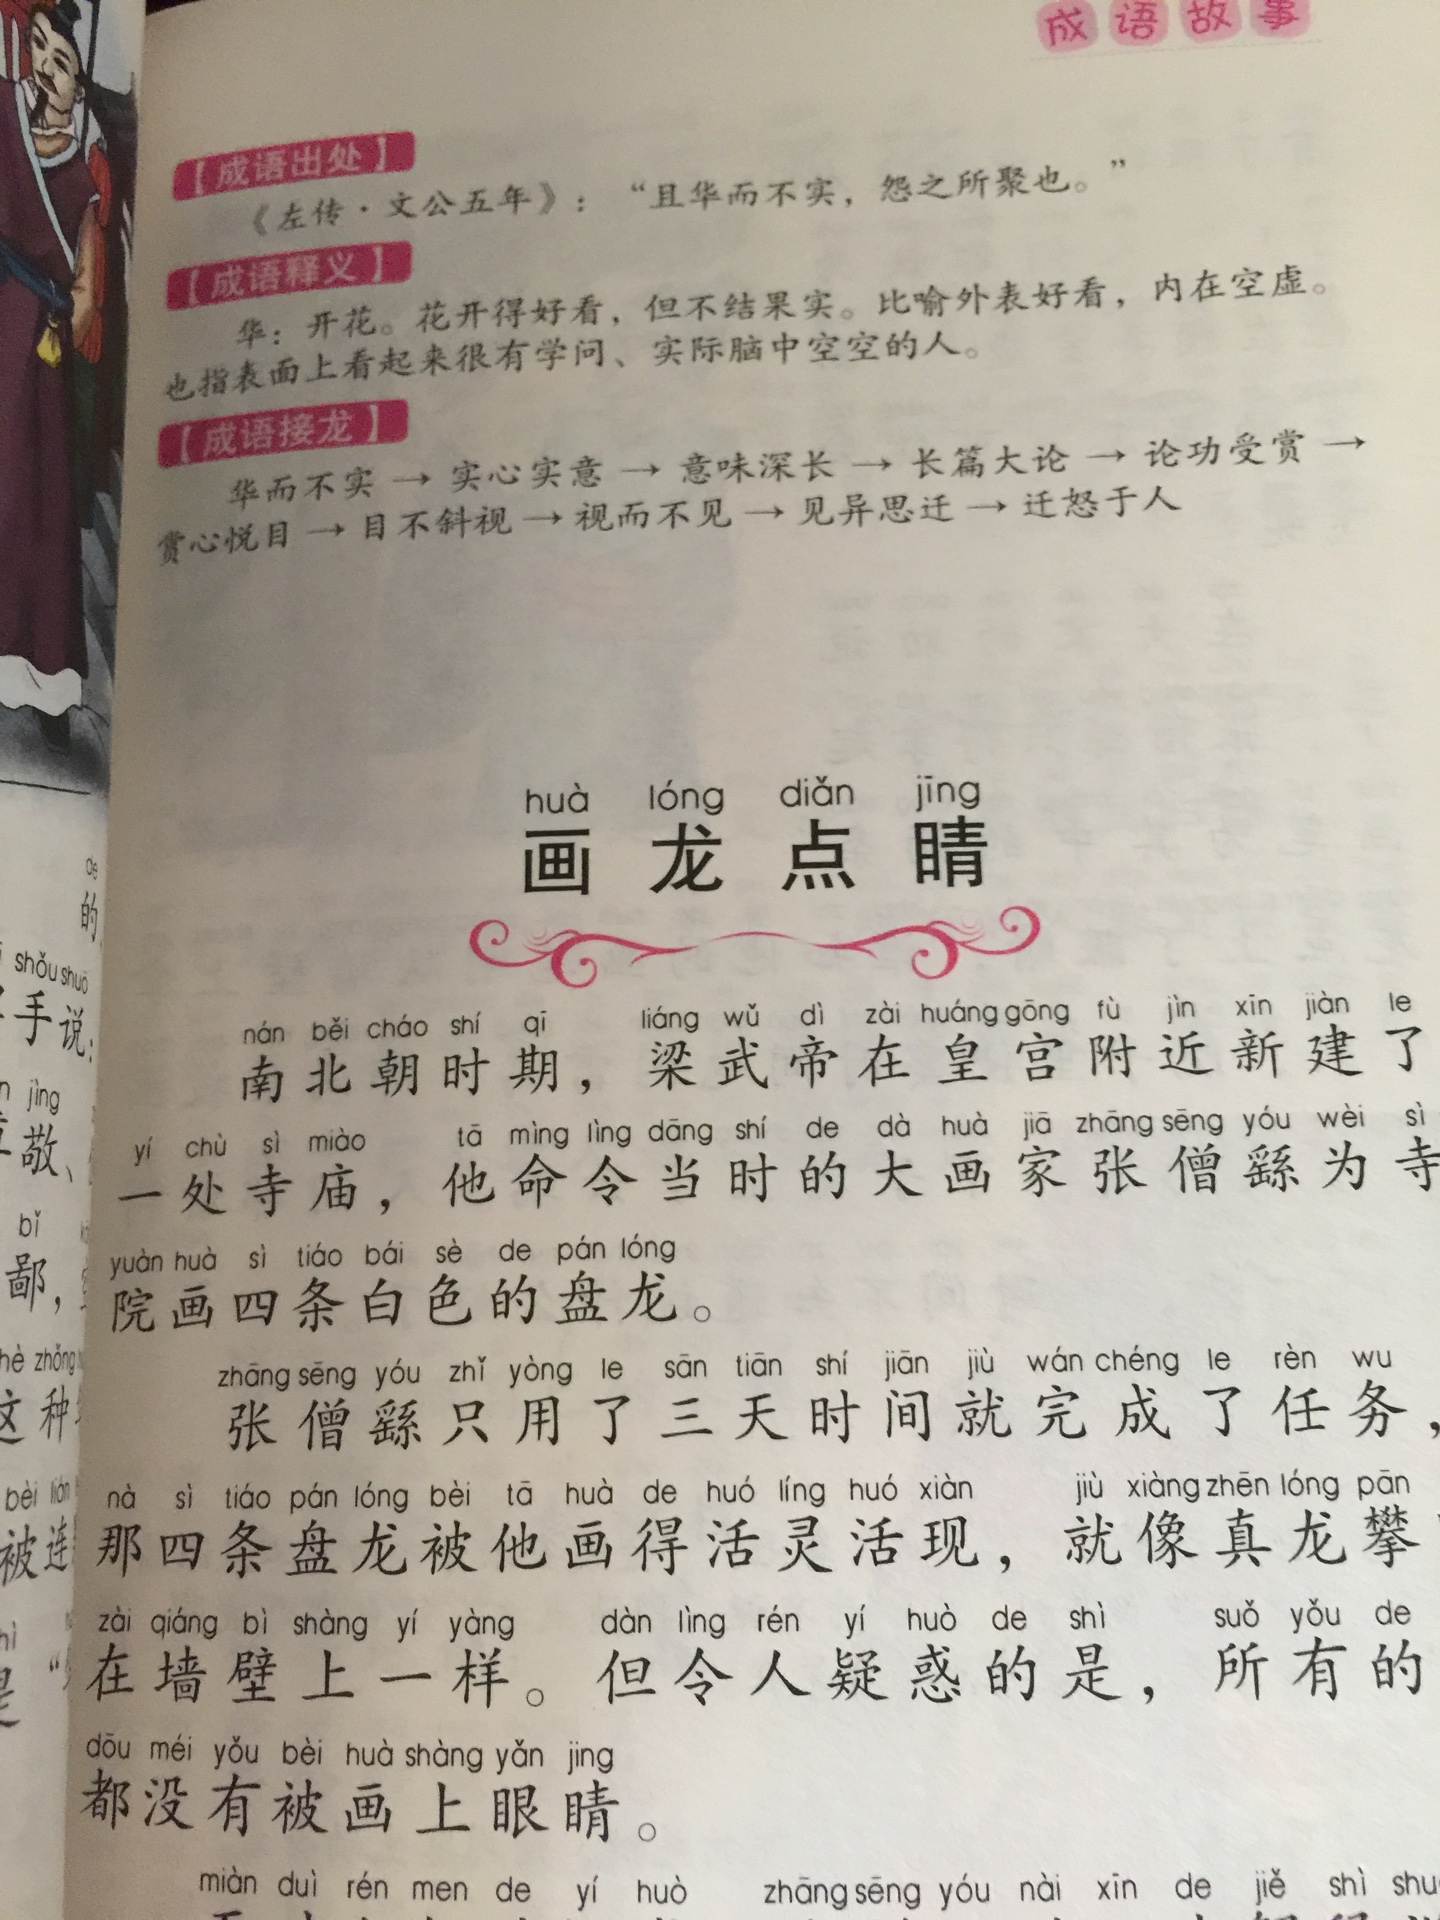 成语故事
【成语出处】
《左传·文公五年》：“且华而不实，怨之所聚也。”
【成语释义】
华：开花。花开得好看，但不结果实。比喻外表好看，内在空虚。
也指表面上看起来很有学问、实际脑中空空的人。
【成语接龙】
华而不实→实心实意→意味深长→长篇大论→论功受赏→
赏心悦目→目不斜视→视而不见→见异思迁→迁怒于人
huà lóng diǎn jīng
画龙点睛
nán běi cháo shí qī liáng wǔ dì zài huáng gōng fù jìn xīn jiàn le
南北朝时期，梁武帝在皇宫附近新建了
yí chù sì miào tā mìng lìng dāng shí de dà huà jiā zhāng sēng yóu wèi sì
一处寺庙，他命令当时的大画家张僧繇为寺
yuàn huà sì tiáo bái sè de pán lóng
院画四条白色的盘龙。
zhāng sēng yóu zhǐ yòng le sān tiān shí jiān jiù wán chéng le rèn wu
张僧繇只用了三天时间就完成了任务，
nà sì tiáo pán lóng bèi tā huà de huó líng huó xiàn jiù xiàng zhēn lóng pān
那四条盘龙被他画得活灵活现，就像真龙攀
zài qiáng bì shàng yí yàng dàn lìng rén yí huò de shì suǒ yǒu de
在墙壁上一样。但令人疑惑的是，所有的
dōu méi yǒu bèi huà shàng yǎn jing
都没有被画上眼睛。
miàn duì rén men de yí huò zhāng sēng yóu nài xīn de jiě shì
的
shǒu shuō
手说：
jìng
敬、
bǐ
鄙，
zhè zhǒng
这种
bèi lián
被连
是“